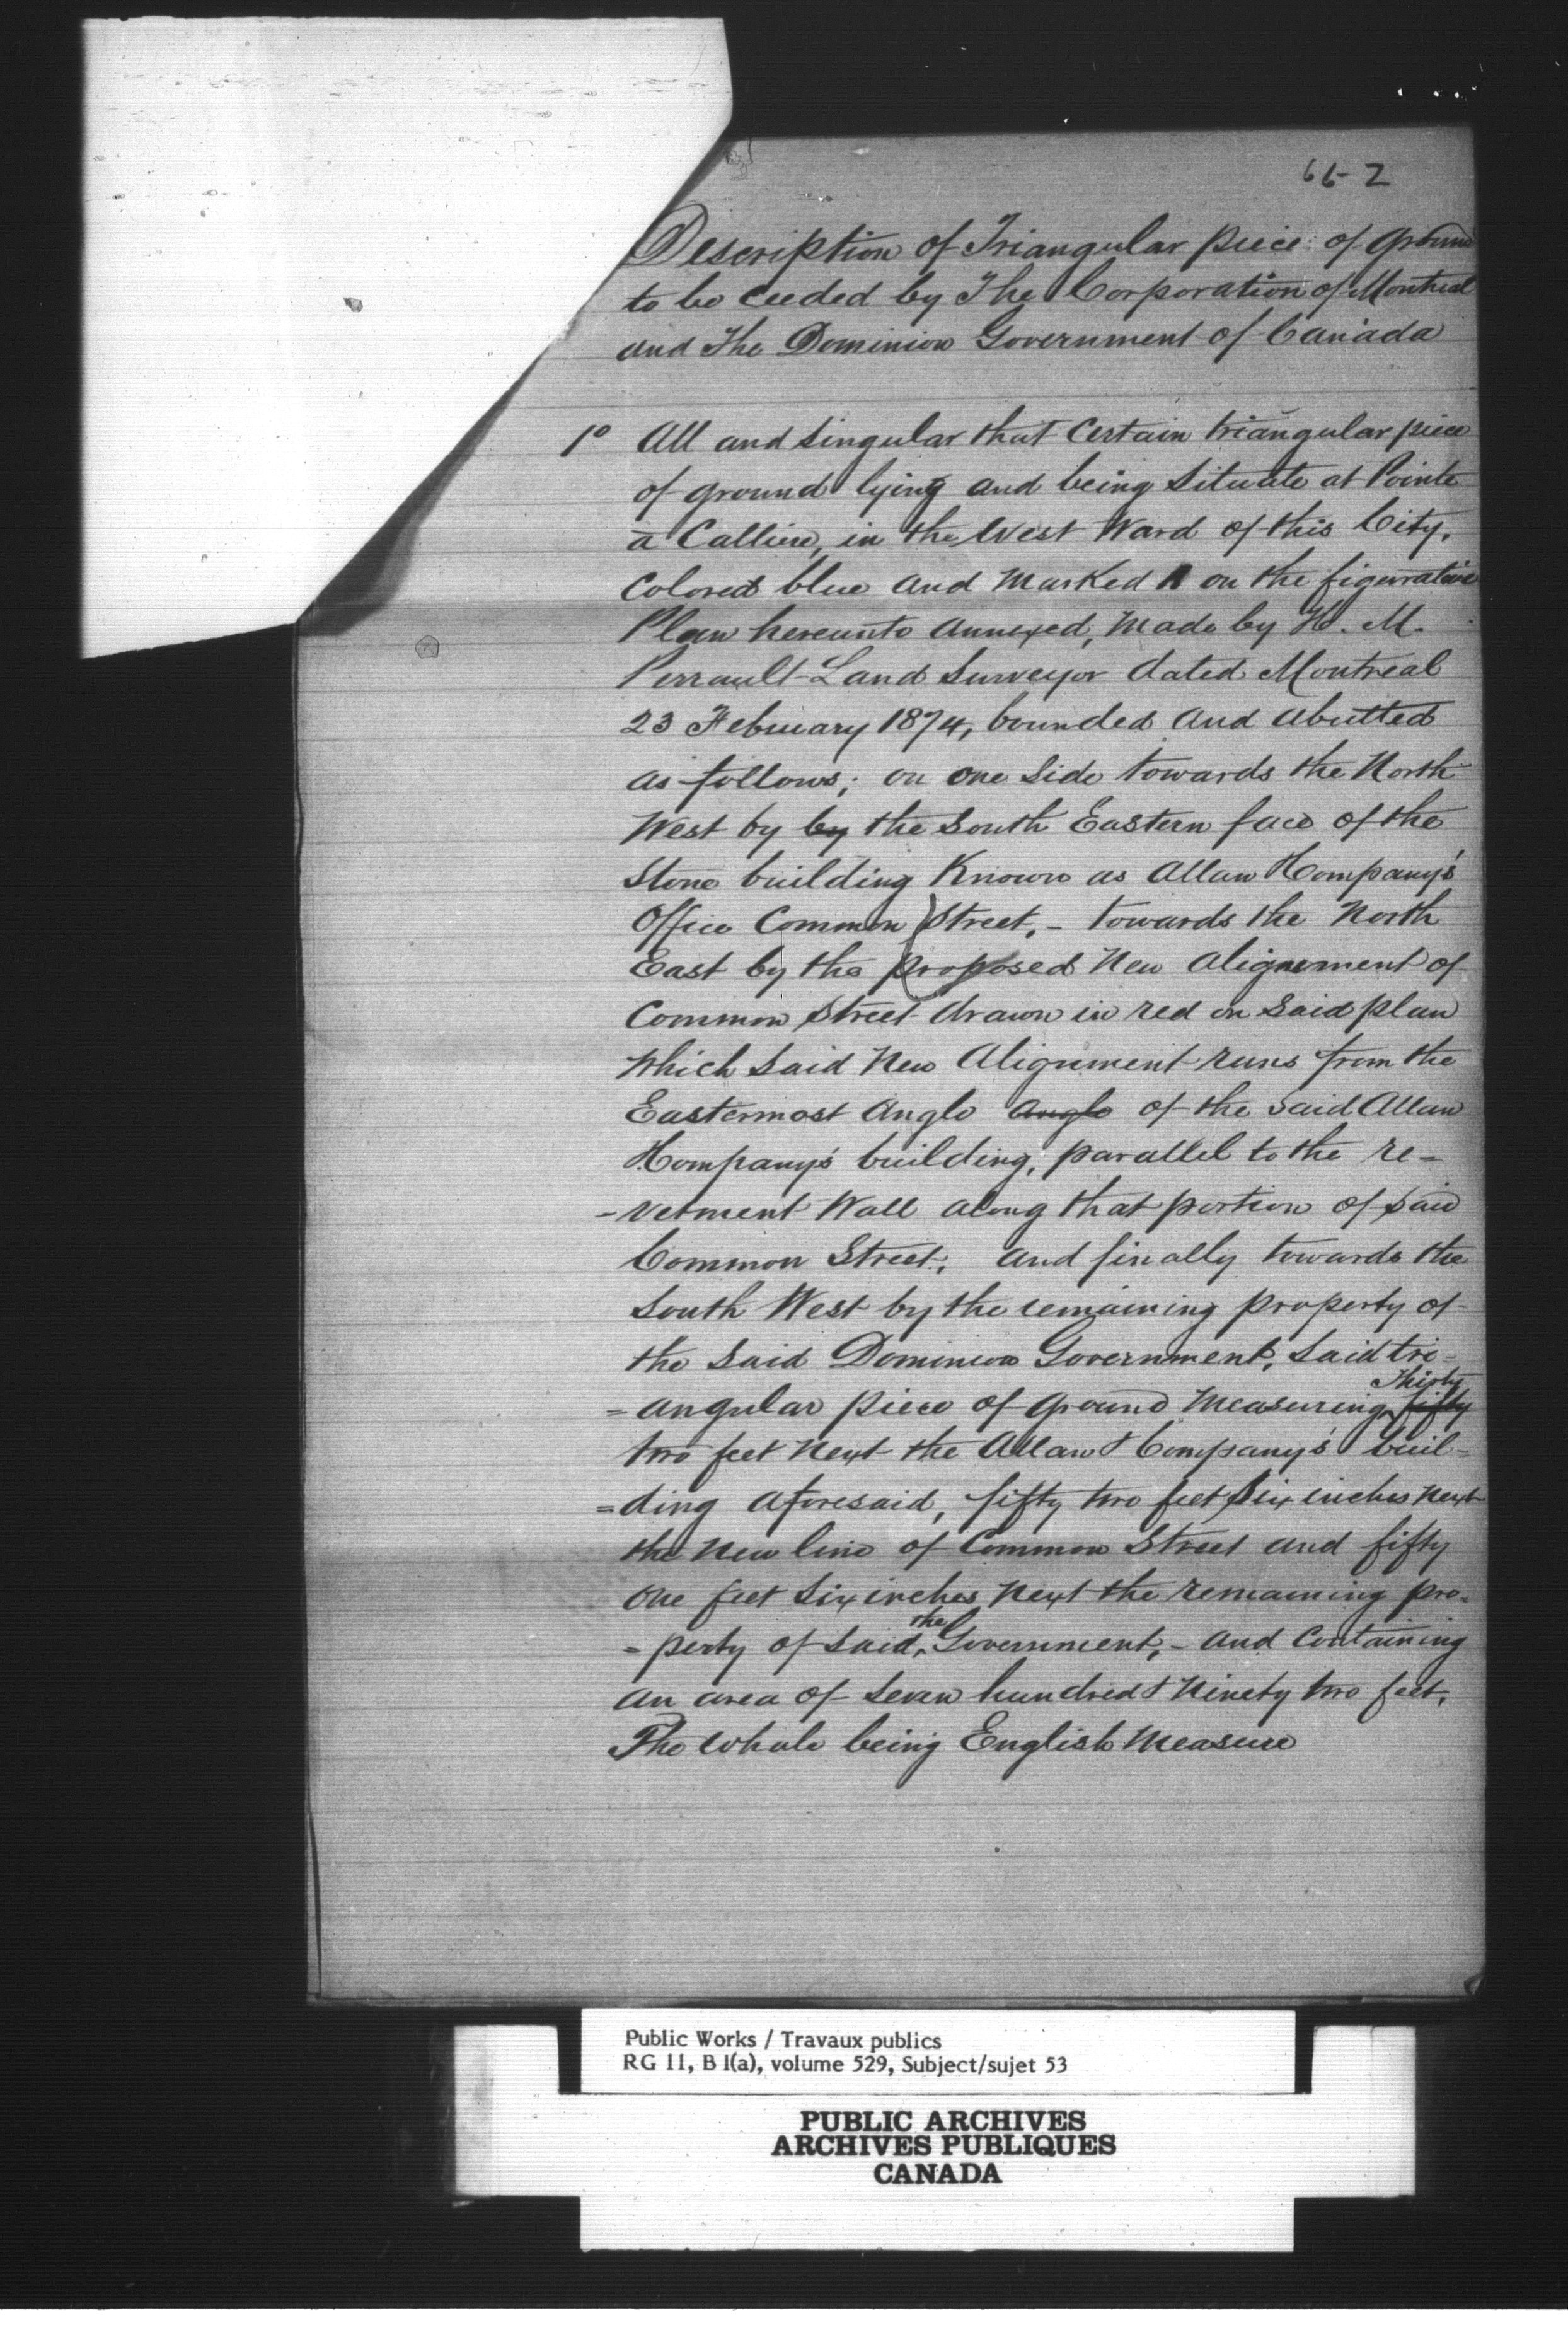 66-2
Description of Triangular piece of ground
to be ceeded by The Corporation of Montreal
and The Dominion Government of Canada
1º All and Singular that Certain triangular piece
of ground lying and being Situate at Pointe
à Calliere, in the West Ward of this City,
Colored blue and Marked A on the figurative
Plan hereunto Annexed, Made by H. M.
Perrault Land Surveyor dated Montreal
23 February 1874, bounded and abutted
as follows; on one Side towards the North
West by by the South Eastern face of the
Stone building Known as Allan & Company's
Office Common Street, - towards the North
East by the proposed New Alignement of
Common Street drawn in red on Said plan
Which Said New Alignment runs from the
Eastermost Angle Angle of the Said Allan
& Company's building, parallel to the re=
-vetment Wall along that portion of said
Common Street, and finally towards the
South West by the remaining property of
the Said Dominion Government, Said tri=
=angular piece of ground Measuring Thirty fifty
two feet Next the Allan & Company's buil=
=ding aforesaid, fifty two feet Six inches Next
the New line of Common Street and fifty
One feet Six inches Next the remaining pro=
=perty of Said the Government, - and Containing
an area of Seven hundred & Ninety two feet,
The Whole being English Measure
Public Works / Travaux publics
RG 11, B 1(a), volume 529, Subject/sujet 53
PUBLIC ARCHIVES
ARCHIVES PUBLIQUES
CANADA